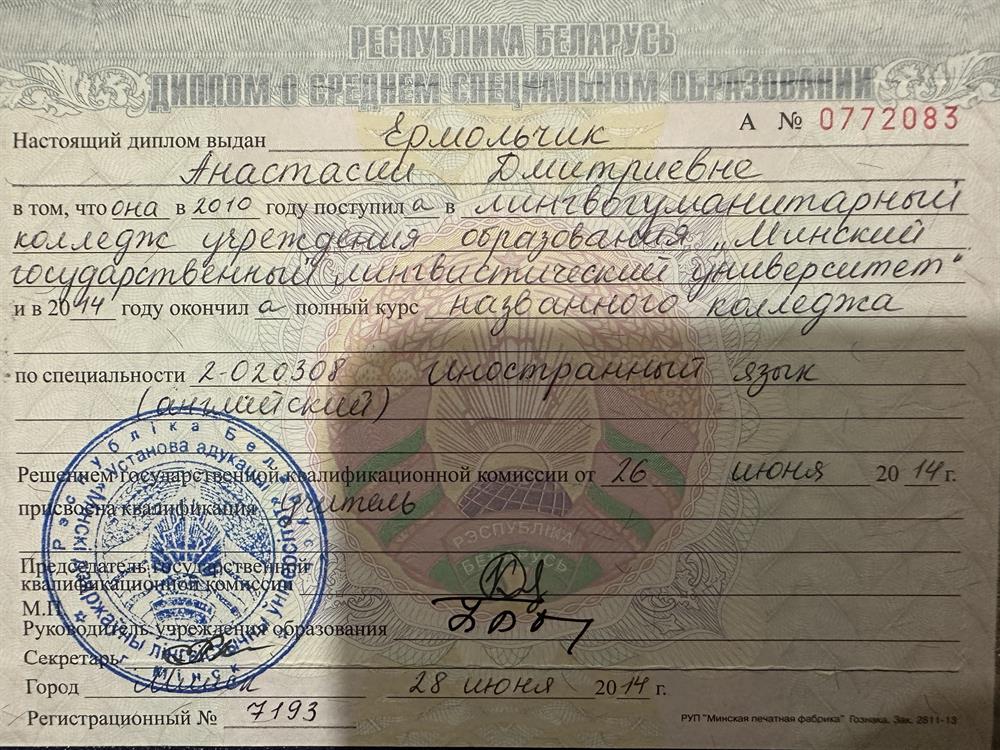 РЕСПУБЛИКА БЕЛАРУСЬ
ДИПЛОМ О СРЕДНЕМ СПЕЦИАЛЬНОМ ОБРАЗОВАНИИ
А № 0772083
Настоящий диплом выдан Ермольчик
Анастасии Дмитриевне
в том, что она в 2010 году поступила в лингвогуманитарный
колледж учреждения образования „Минский
государственный лингвистический университет“
и в 2014 году окончила полный курс названного колледжа
по специальности 2-020308 Иностранный язык
(английский)
Решением государственной квалификационной комиссии от 26 июня 2014 г.
присвоена квалификация учитель
РЭСПУБЛІКА
БЕЛАРУСЬ
Председатель государственной
квалификационной комиссии
М.П.
Руководитель учреждения образования
Секретарь
Город Минск 28 июня 2014 г.
Регистрационный № 7193
РУП "Минская печатная фабрика" Гознака. Зак. 2811-13
Рэспубліка Беларусь
Установа адукацыі
«Мінскі дзяржаўны лінгвістычны ўніверсітэт»
г. Мінск